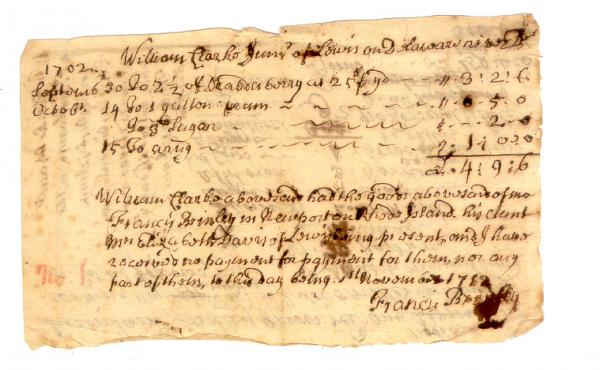 William Clarke Junr of Lewis on Delaware is per Dr
1702
Septemb 30 To 2 1/2 yd at 25 p yd - - " 3 : 2 : 6
Octobr 14 To 1 gallon of rum - - - " 0 5 : 0
To 3 Sugar - - - " - - 2 - 0
15 To a rug - - - 1 : 0 0
4 : 9 : 6
William Clarke abovesaid had the goods abovesaid of me
Francis Brinley in Newport on Rhode Island. his aunt
Mrs Elizabeth Davis of Lewis being present, and I have
received no payment for payment for them, nor any
part of them, to this day being 1st November 1712
Francis Brinley
No. 1.